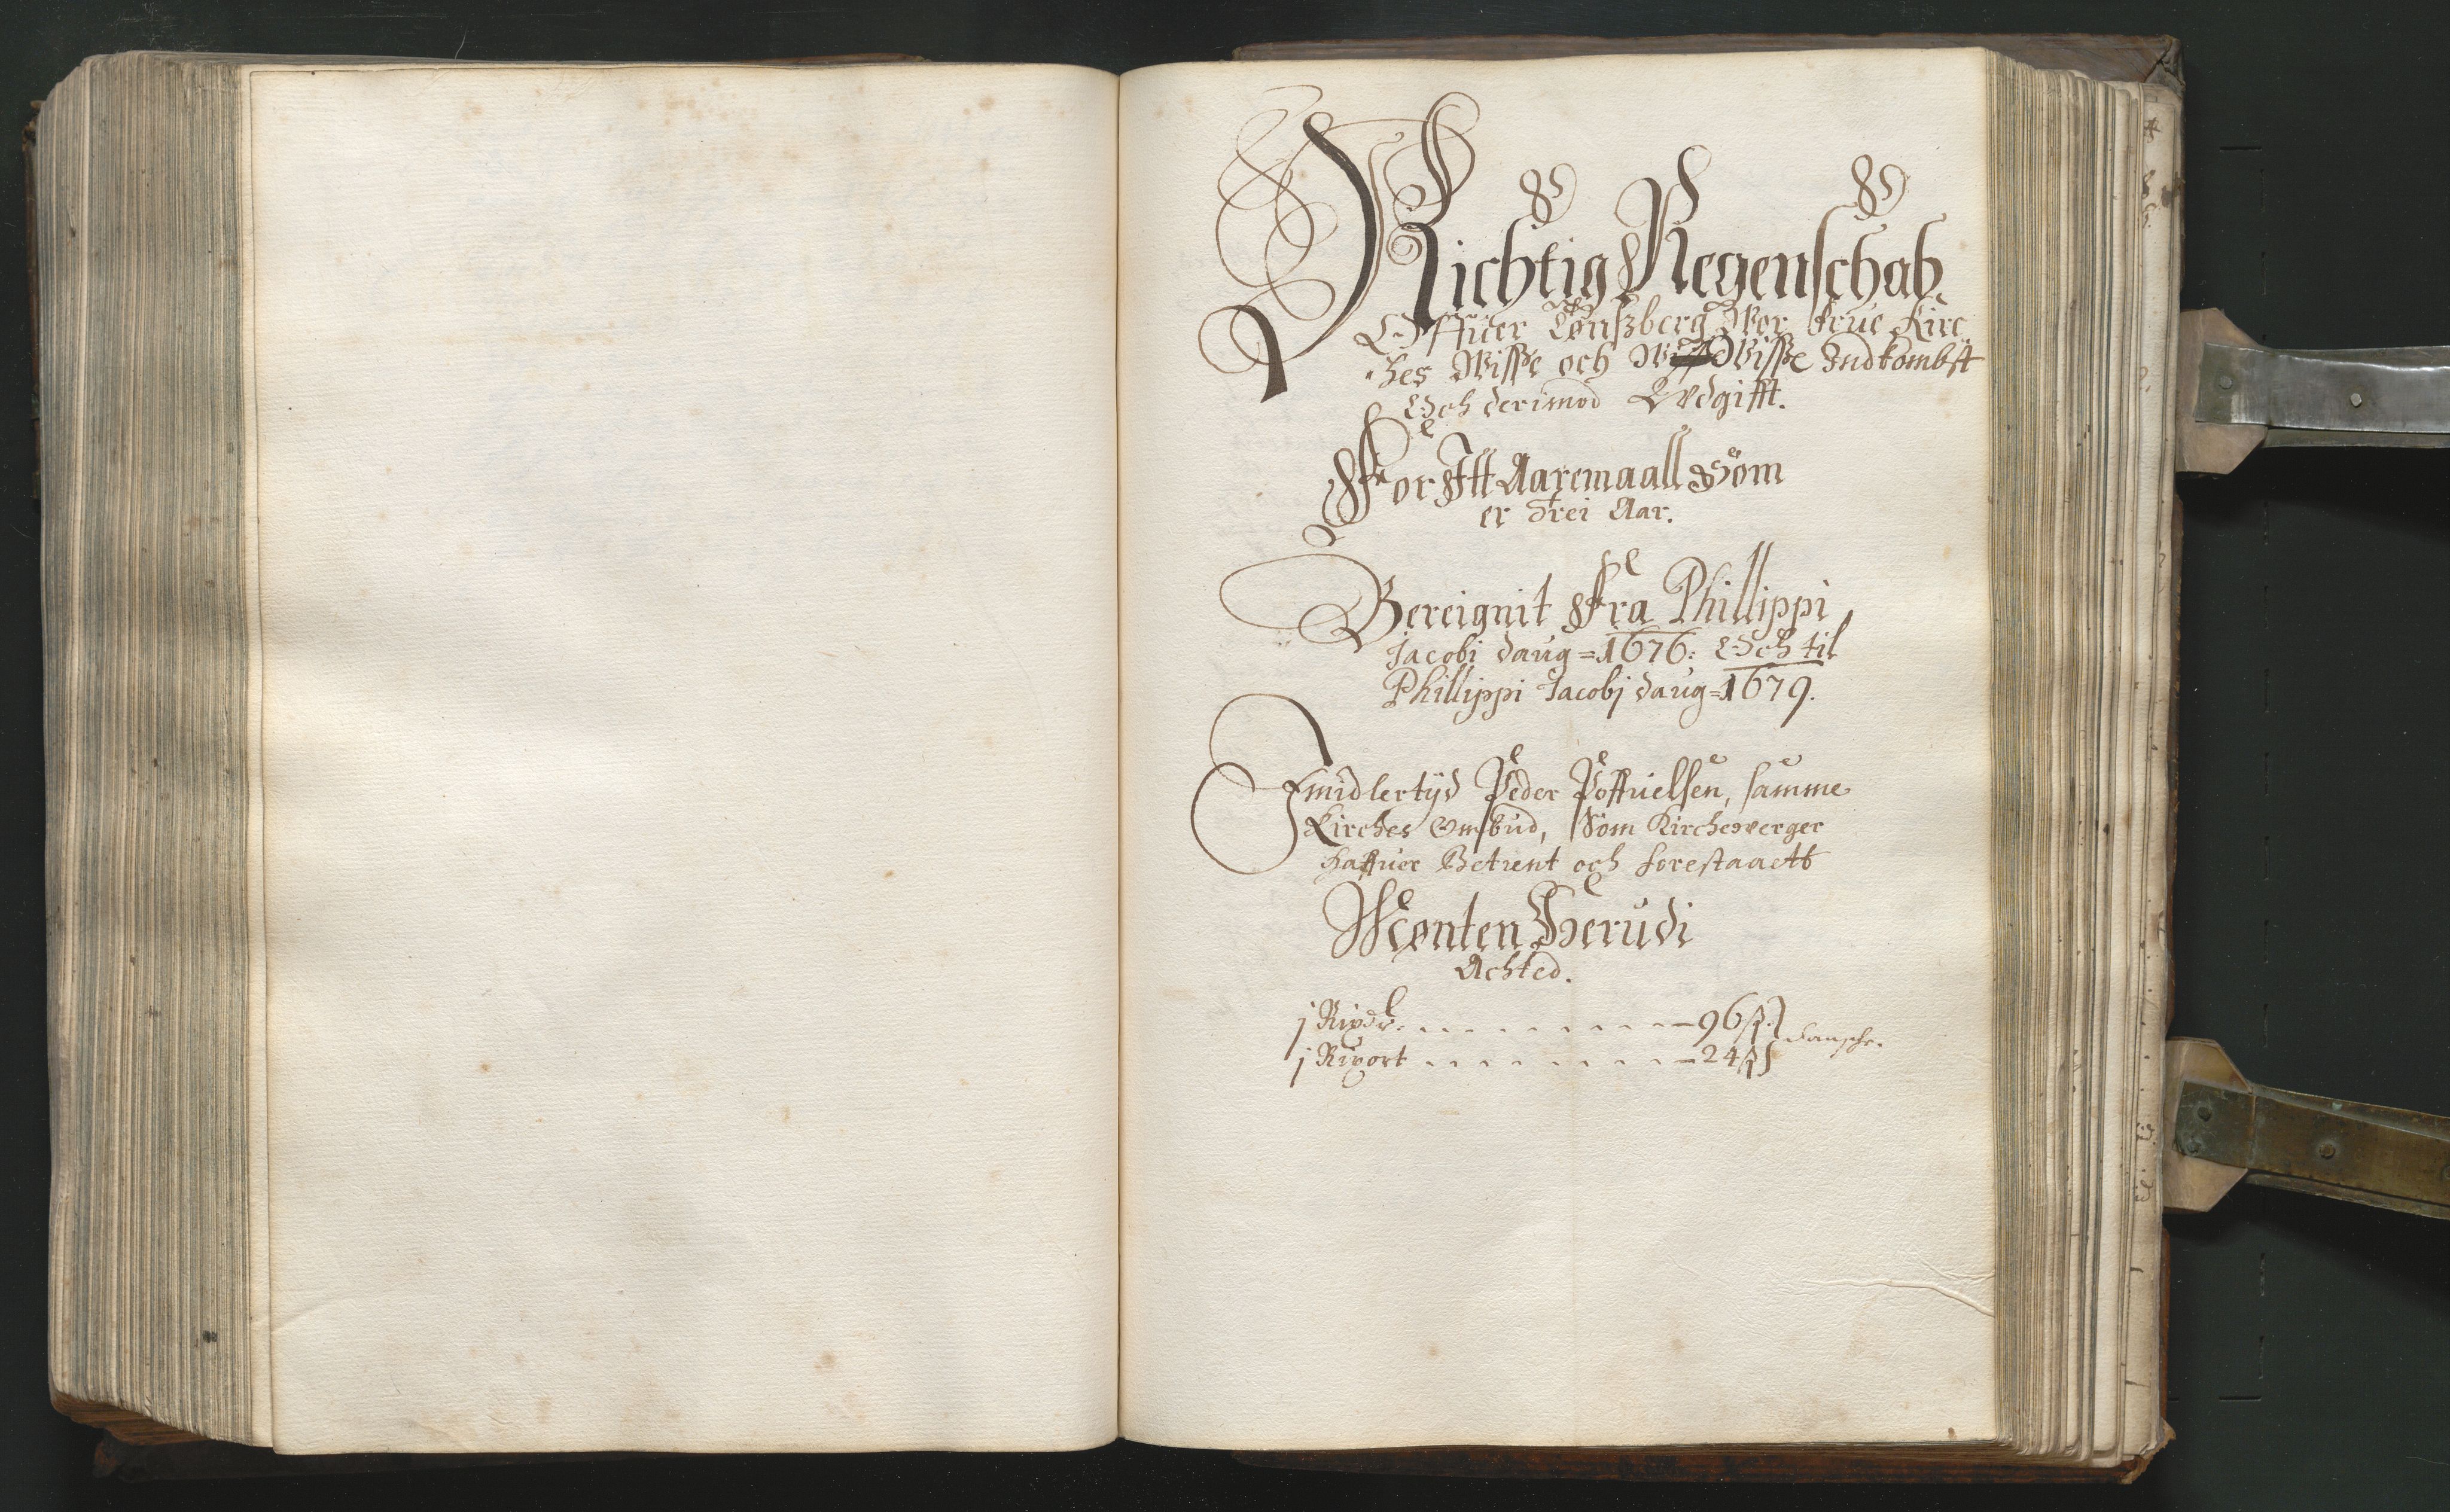 Richtig Regenschab
Offuer Tønsberg Vor frue Kirc
hes Wisse och Wisse Indkombst
Och derimod Vdgifft.
For Itt Aaremaall Som
er Trei Aar.
Bereignit Fra Phillippi
Jacobi daug = 1676: Och til
Phillippi Jacobj daug = 1679.
Imidlertijd Peder Poffuelsen, samme
Kirches Ombud, Som Kircheverger
haffuer Betient och forestaaett
Mønten Herudi
Achted.
j Rixdr. - - - - - - - - 96 ß
j Rixort - - - - - - - - 24 ß
dansche.